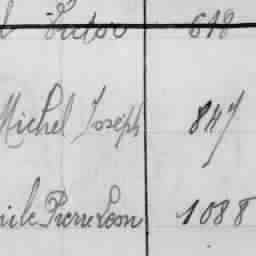 Victor 618
Michel Joseph 847
Pierre Léon 1088